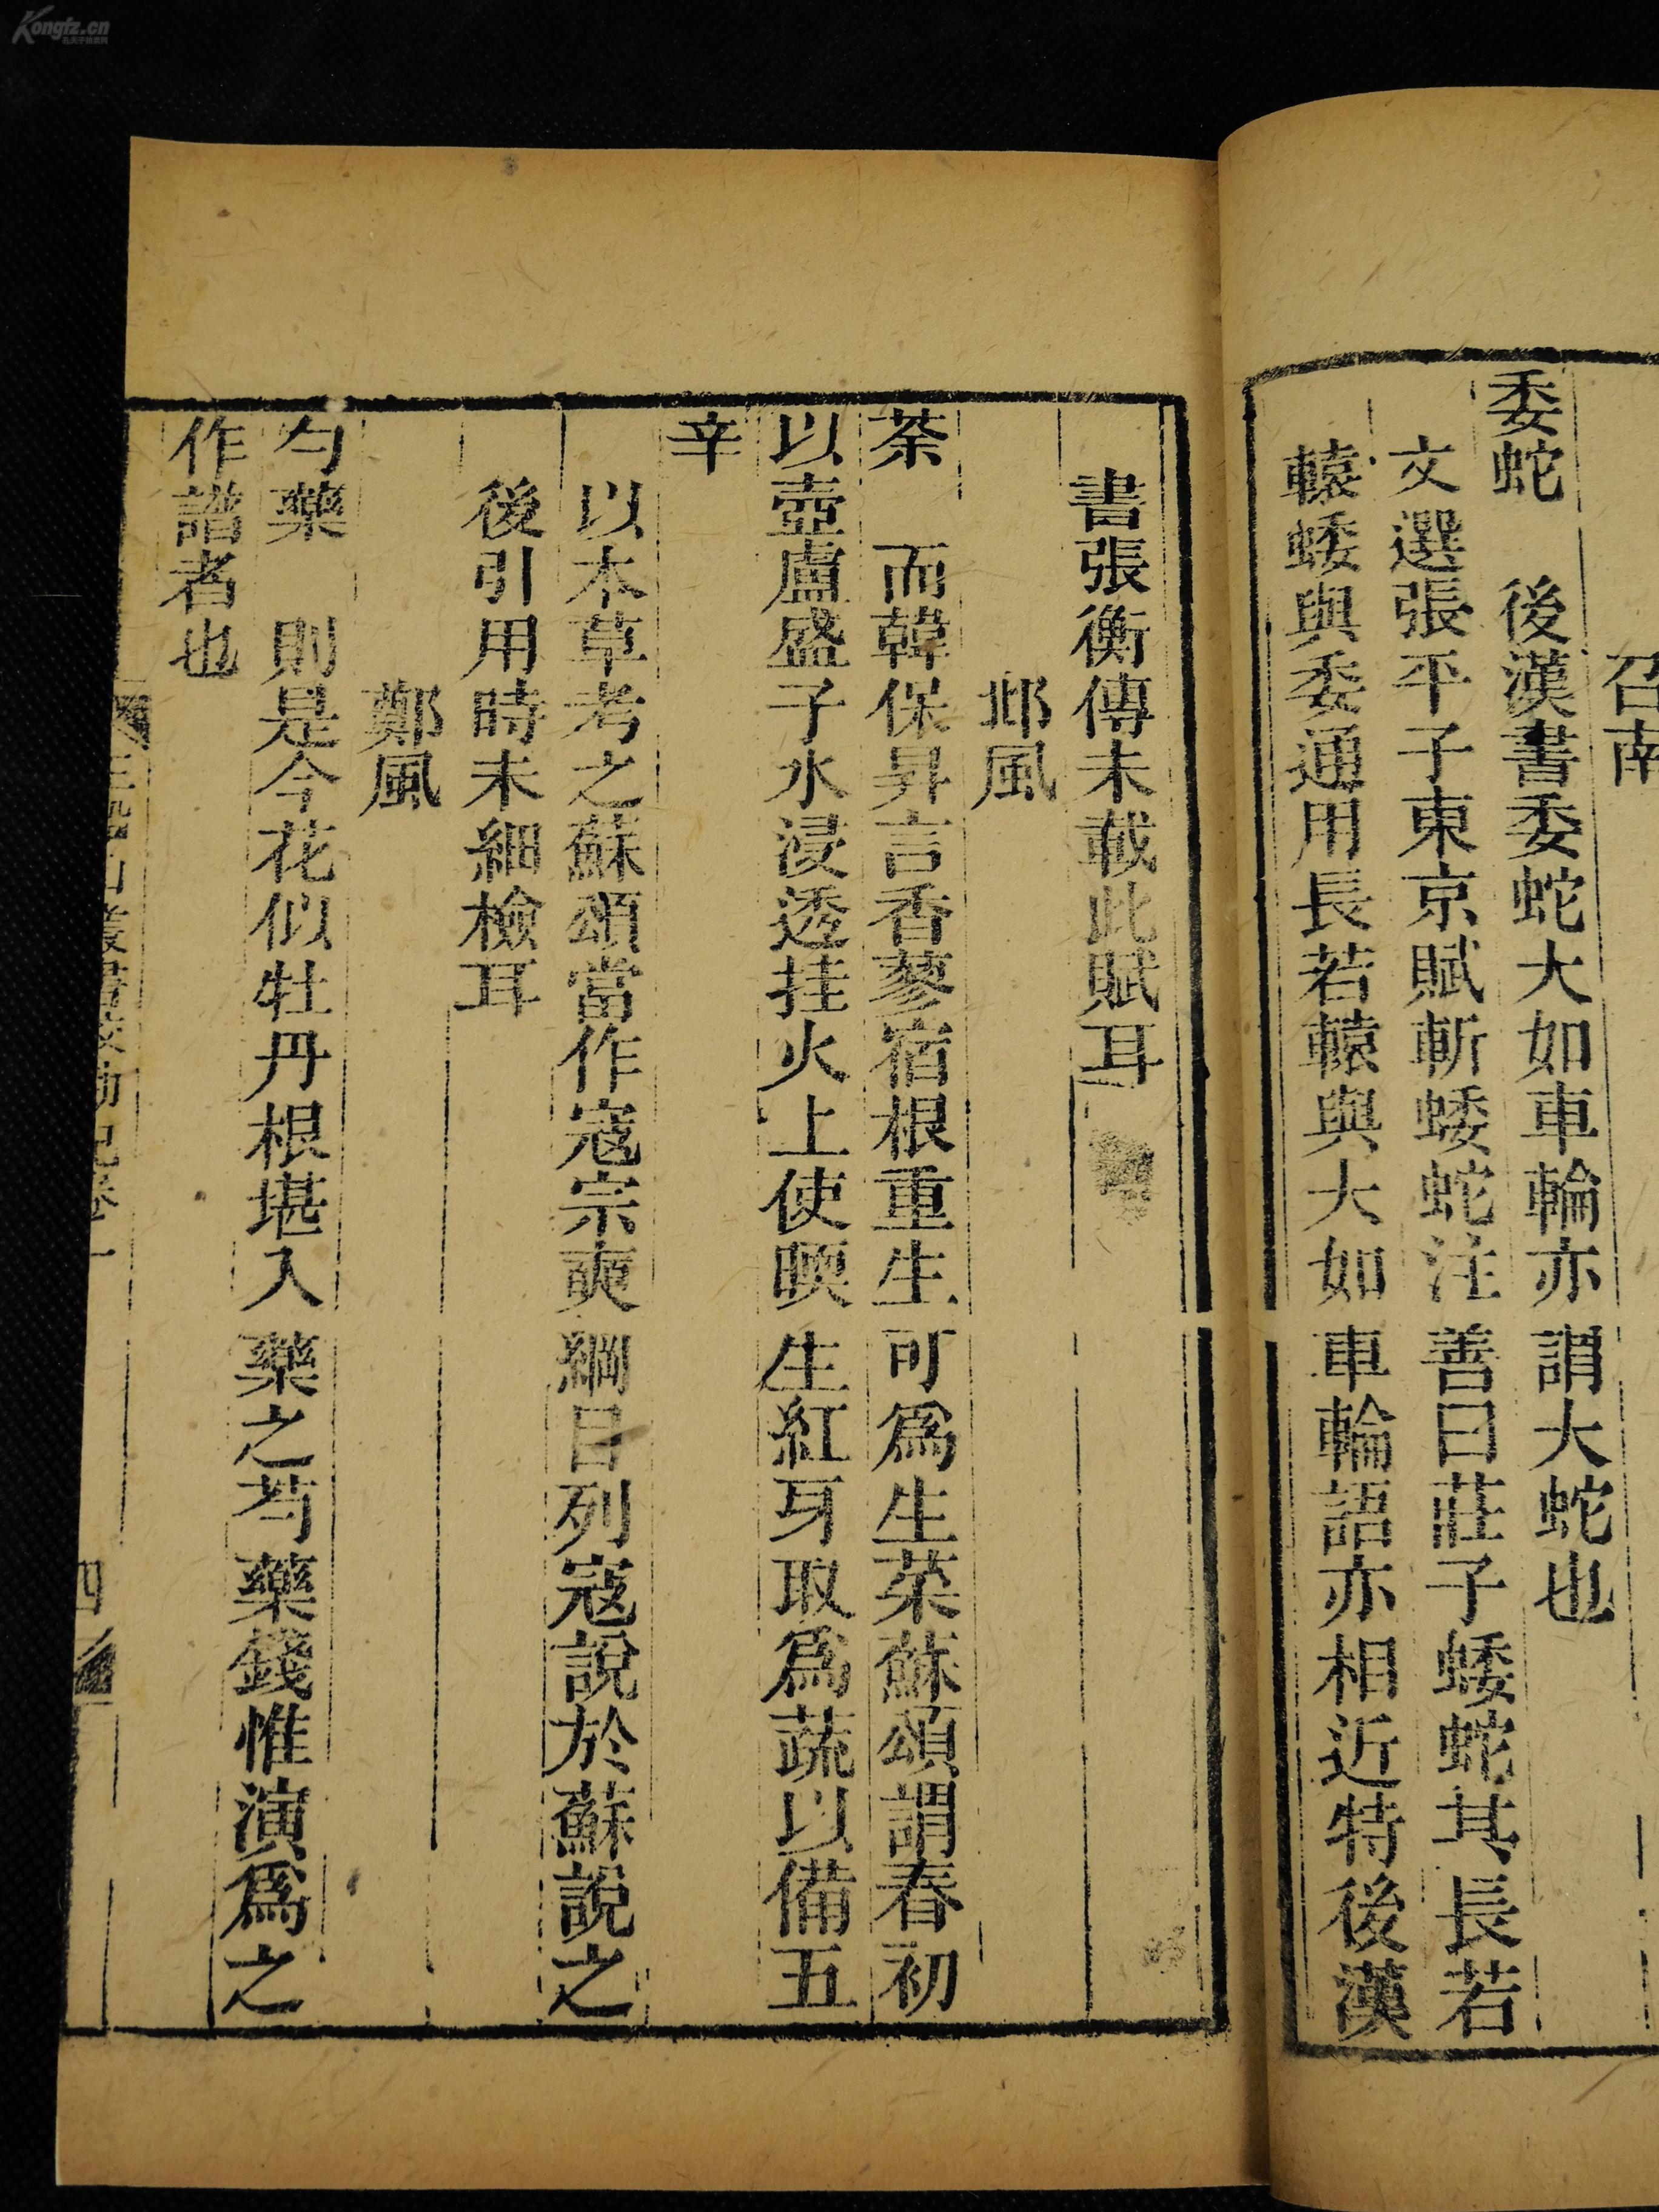 召南
委蛇　後漢書委蛇大如車輪亦謂大蛇也
文選張平子東京賦斬蜲蛇注善曰莊子蜲蛇其長若
轅蜲與委通用長若轅與大如車輪語亦相近特後漢
書張衡傳未載此賦耳
邶風
荼　而韓保昇言香蓼宿根重生可爲生菜蘇頌謂春初
以壺盧盛子水浸透挂火上使暖生紅芽取爲蔬以備五
辛
以本草考之蘇頌當作寇宗奭綱目列寇說於蘇說之
後引用時未細檢耳
鄭風
勺藥　則是今花似牡丹根堪入藥之芍藥錢惟演爲之
作譜者也
四
Kongfz.cn